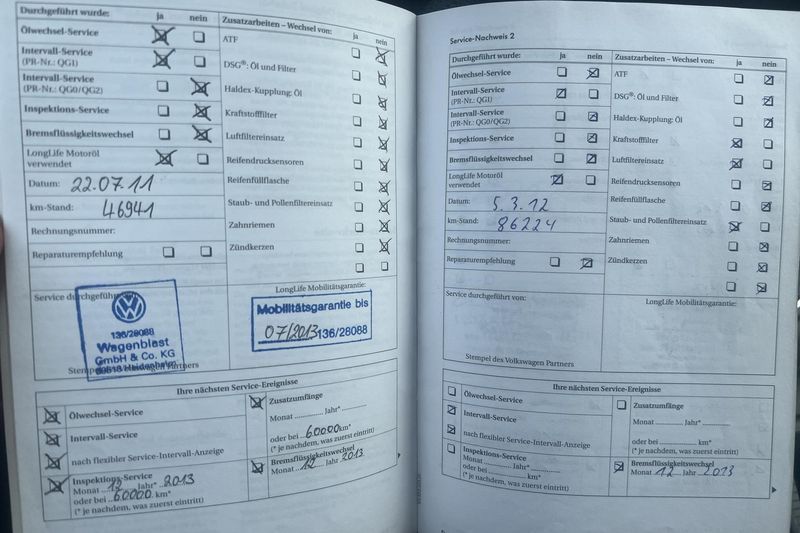 Durchgeführt wurde: ja nein
Ölwechsel-Service
Intervall-Service
(PR-Nr.: QG1)
Intervall-Service
(PR-Nr.: QG0/QG2)
Inspektions-Service
Bremsflüssigkeitswechsel
LongLife Motoröl
verwendet
Datum: 22.07.11
km-Stand: 46941
Rechnungsnummer:
Reparaturempfehlung
Zusatzarbeiten – Wechsel von: ja nein
ATF
DSG®: Öl und Filter
Haldex-Kupplung: Öl
Kraftstofffilter
Luftfiltereinsatz
Reifendrucksensoren
Reifenfüllflasche
Staub- und Pollenfiltereinsatz
Zahnriemen
Zündkerzen
Service durchgeführt von:
136/28088
Wagenblast
GmbH & Co. KG
89518 Heidenheim
Stempel des Volkswagen Partners
LongLife Mobilitätsgarantie:
Mobilitätsgarantie bis
07/2013 136/28088
Ihre nächsten Service-Ereignisse
Ölwechsel-Service
Intervall-Service
nach flexibler Service-Intervall-Anzeige
Inspektions-Service
Monat 12 Jahr* 2013
oder bei 60000 km*
(* je nachdem, was zuerst eintritt)
Zusatzumfänge
Monat ............ Jahr* ............
oder bei 60000 km*
(* je nachdem, was zuerst eintritt)
Bremsflüssigkeitswechsel
Monat 12 Jahr 2013
Service-Nachweis 2
Durchgeführt wurde: ja nein
Ölwechsel-Service
Intervall-Service
(PR-Nr.: QG1)
Intervall-Service
(PR-Nr.: QG0/QG2)
Inspektions-Service
Bremsflüssigkeitswechsel
LongLife Motoröl
verwendet
Datum: 5.3.12
km-Stand: 86224
Rechnungsnummer:
Reparaturempfehlung
Zusatzarbeiten – Wechsel von: ja nein
ATF
DSG®: Öl und Filter
Haldex-Kupplung: Öl
Kraftstofffilter
Luftfiltereinsatz
Reifendrucksensoren
Reifenfüllflasche
Staub- und Pollenfiltereinsatz
Zahnriemen
Zündkerzen
Service durchgeführt von:
Stempel des Volkswagen Partners
LongLife Mobilitätsgarantie:
Ihre nächsten Service-Ereignisse
Ölwechsel-Service
Intervall-Service
nach flexibler Service-Intervall-Anzeige
Inspektions-Service
Monat ............ Jahr* ............
oder bei ............ km*
(* je nachdem, was zuerst eintritt)
Zusatzumfänge
Monat ............ Jahr* ............
oder bei ............ km*
(* je nachdem, was zuerst eintritt)
Bremsflüssigkeitswechsel
Monat 12 Jahr 2013